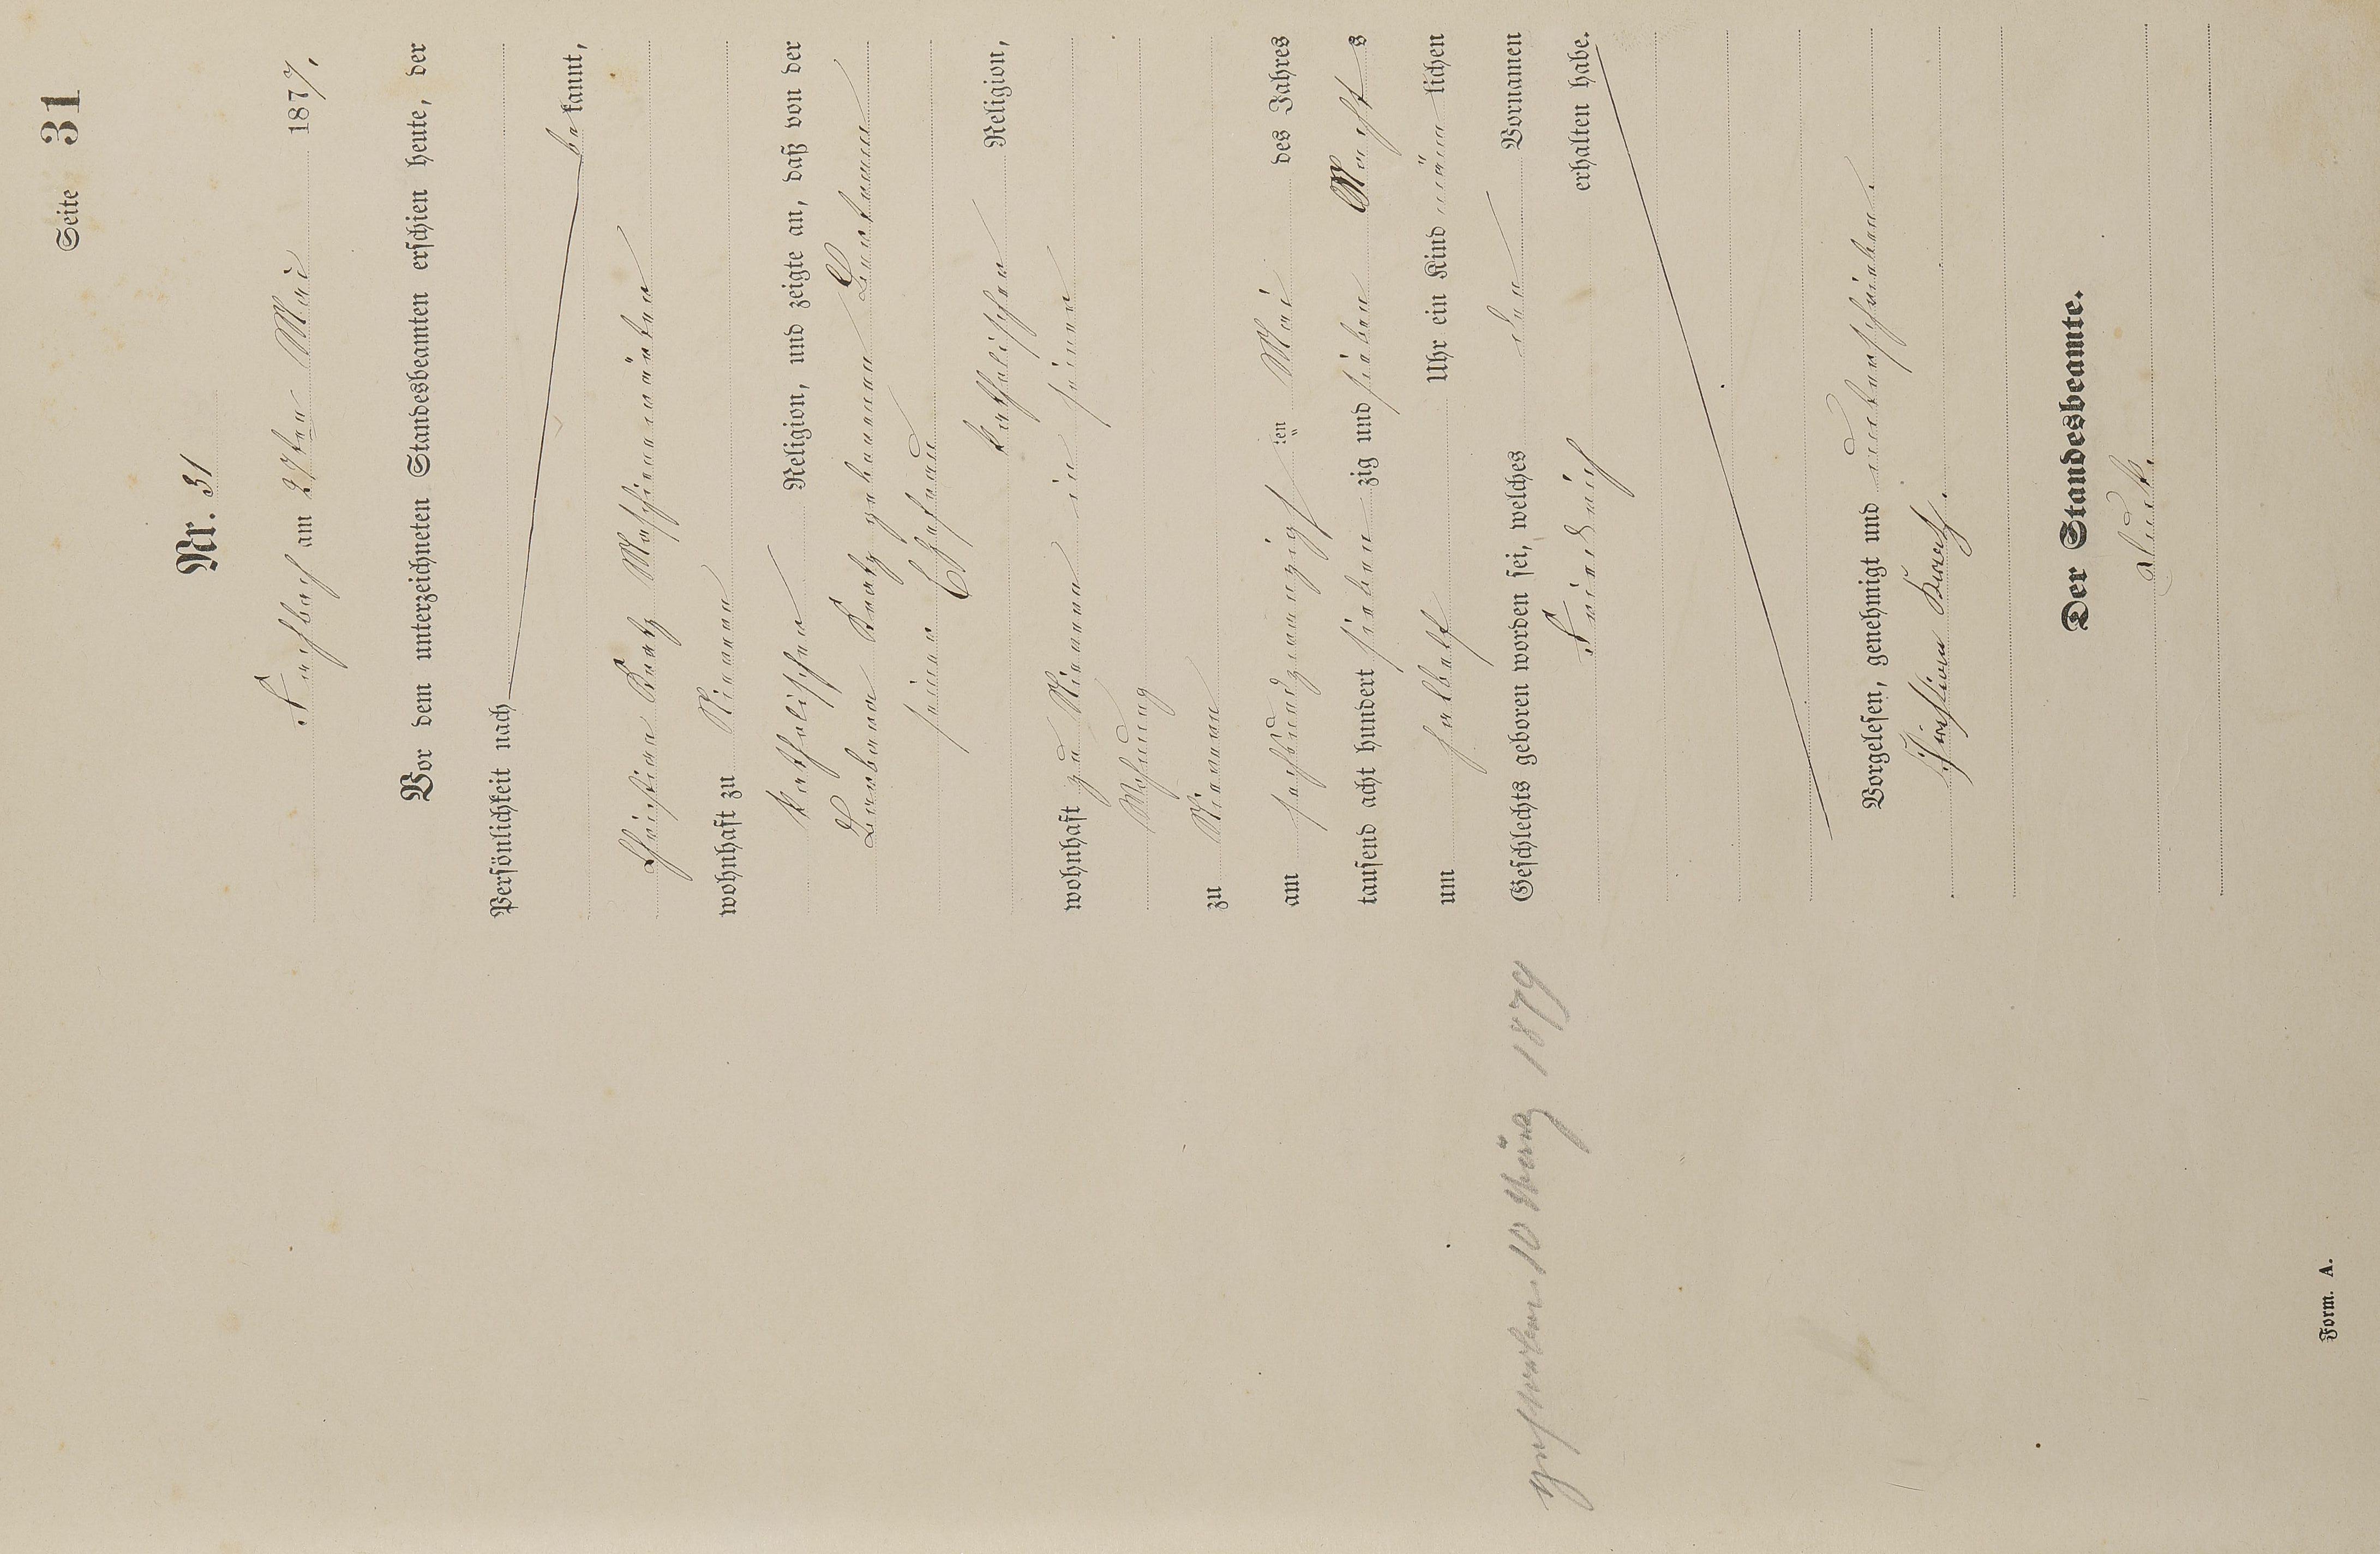 Seite 31
Nr. 31
Fischbach am 27ten Mai 1877.
Vor dem unterzeichneten Standesbeamten erschien heute, der
Persönlichkeit nach
be kannt,
Christian Kratz Maschinenwärter
wohnhaft zu
katholischer Religion, und zeigte an, daß von der
Barbara Kratz geborenen
seiner Ehefrau
katholischer Religion,
wohnhaft zu in seiner
Wohnung
zu
am sechsundzwanzigsten Mai des Jahres
tausend acht hundert sieben zig und sieben Nachts
um halbelf Uhr ein Kind männlichen
Geschlechts geboren worden sei, welches den Vornamen
Friedrich
erhalten habe.
Vorgelesen, genehmigt und unterschrieben.
Christian Kratz.
Der Standesbeamte.
gestorben 10 März 1879
Form. A.